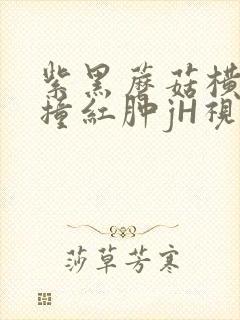 紫黑蘑菇横
撞紅肿jH視
莎草芳寒